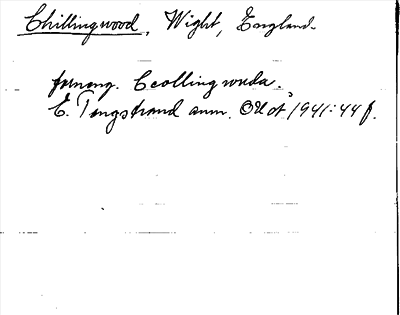 Chillingwood, Wight, England.
forneng. Ceolling wuda.
E. Tengstrand anm. OUoT 1941:44 f.